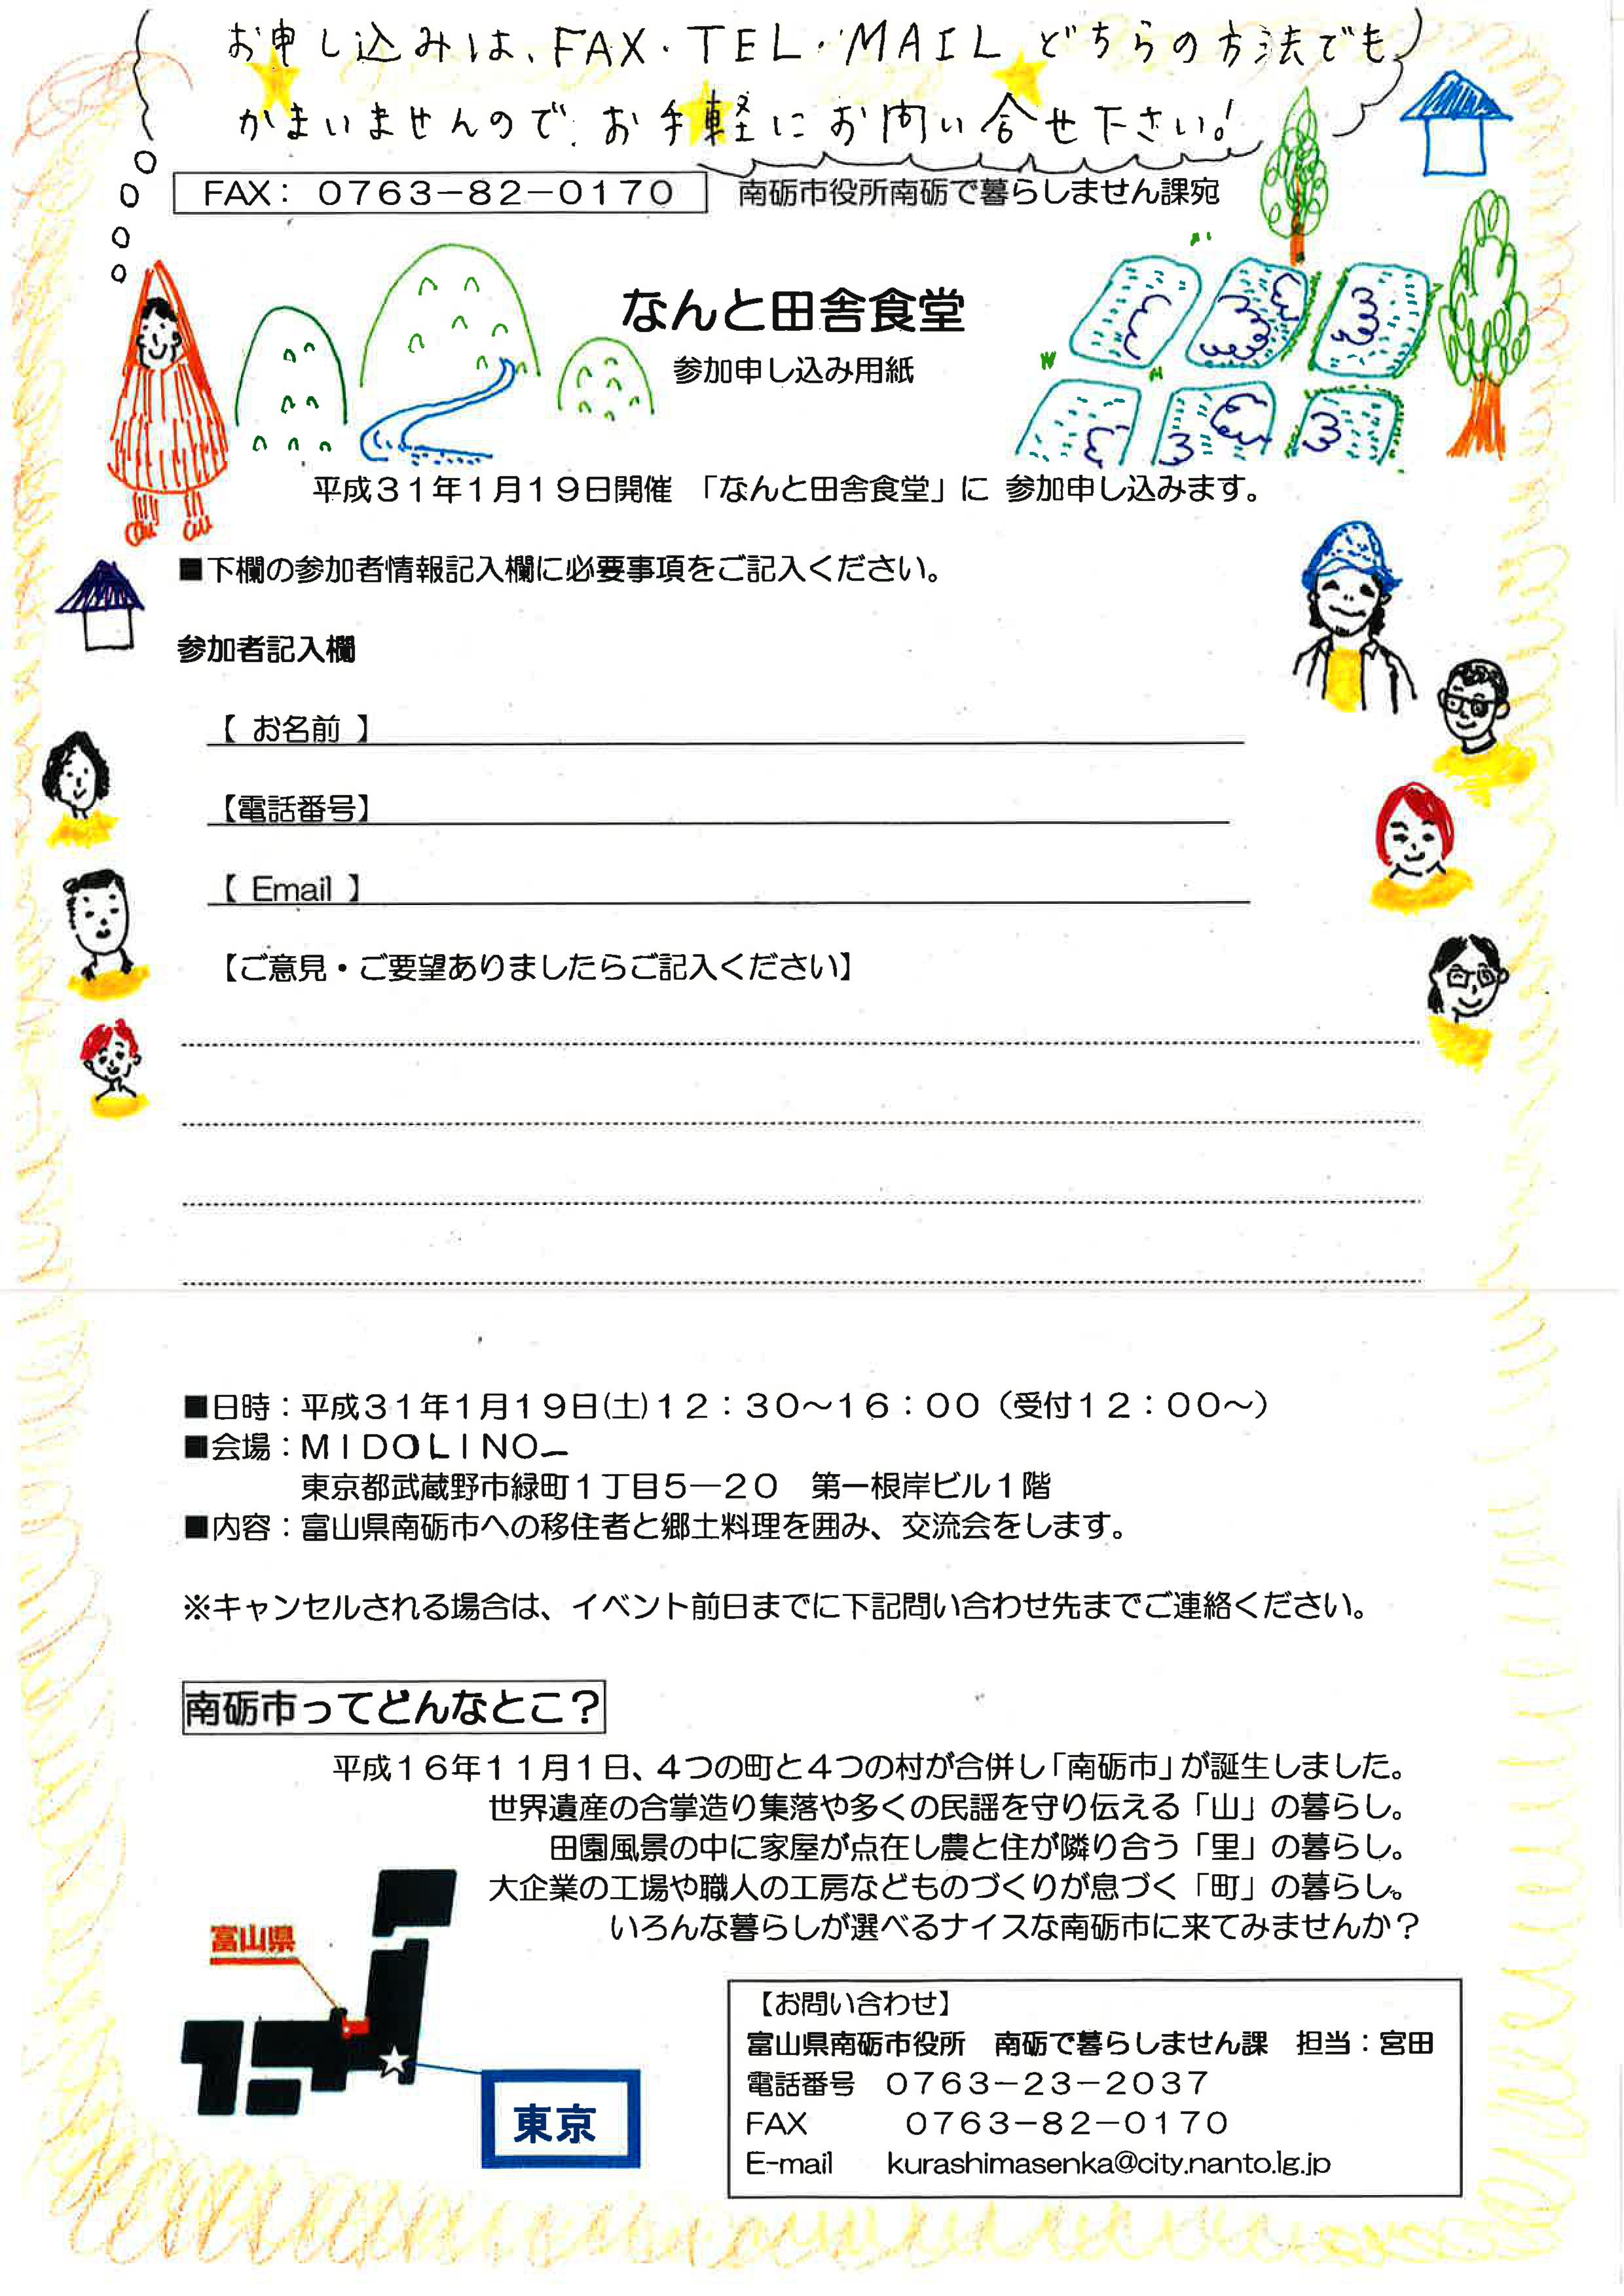 お申し込みは、FAX・TEL・MAIL どちらの方法でも
かまいませんので、お手軽にお問い合せ下さい！
FAX： 0763−82−0170
南砺市役所南砺で暮らしません課宛
なんと田舎食堂
参加申し込み用紙
平成31年1月19日開催 「なんと田舎食堂」に 参加申し込みます。
■下欄の参加者情報記入欄に必要事項をご記入ください。
参加者記入欄
【 お名前 】
【電話番号】
【 Email 】
【ご意見・ご要望ありましたらご記入ください】
■日時：平成31年1月19日(土)12：30～16：00（受付12：00～）
■会場：MIDOLINO_
東京都武蔵野市緑町1丁目5―20　第一根岸ビル1階
■内容：富山県南砺市への移住者と郷土料理を囲み、交流会をします。
※キャンセルされる場合は、イベント前日までに下記問い合わせ先までご連絡ください。
南砺市ってどんなとこ？
平成16年11月1日、4つの町と4つの村が合併し「南砺市」が誕生しました。
世界遺産の合掌造り集落や多くの民謡を守り伝える「山」の暮らし。
田園風景の中に家屋が点在し農と住が隣り合う「里」の暮らし。
大企業の工場や職人の工房などものづくりが息づく「町」の暮らし。
いろんな暮らしが選べるナイスな南砺市に来てみませんか？
富山県
東京
【お問い合わせ】
富山県南砺市役所　南砺で暮らしません課　担当：宮田
電話番号　0763−23−2037
FAX　0763−82−0170
E-mail　kurashimasenka@city.nanto.lg.jp